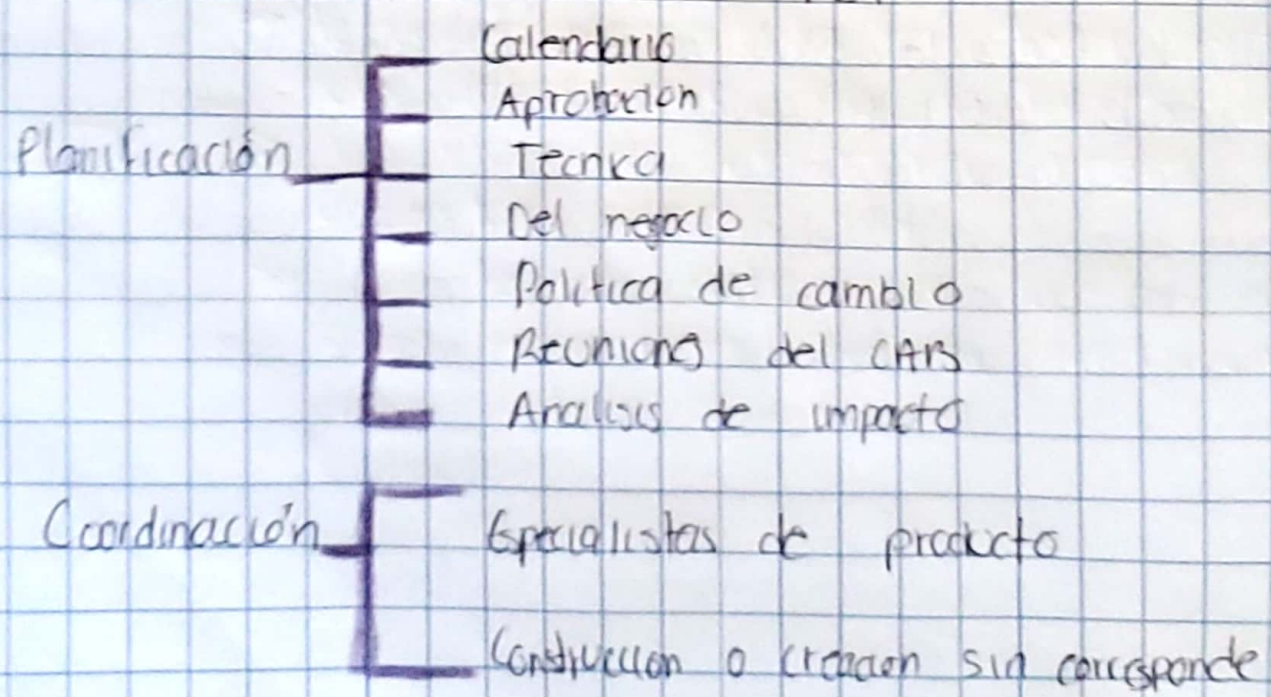 Calendario
Aprobación
Planificación
Tecnica
Del negocio
Politica de cambio
Reuniones del CAB
Analisis de impacto
Coordinación
Especialistas de producto
Construccion o creacion sia corresponde